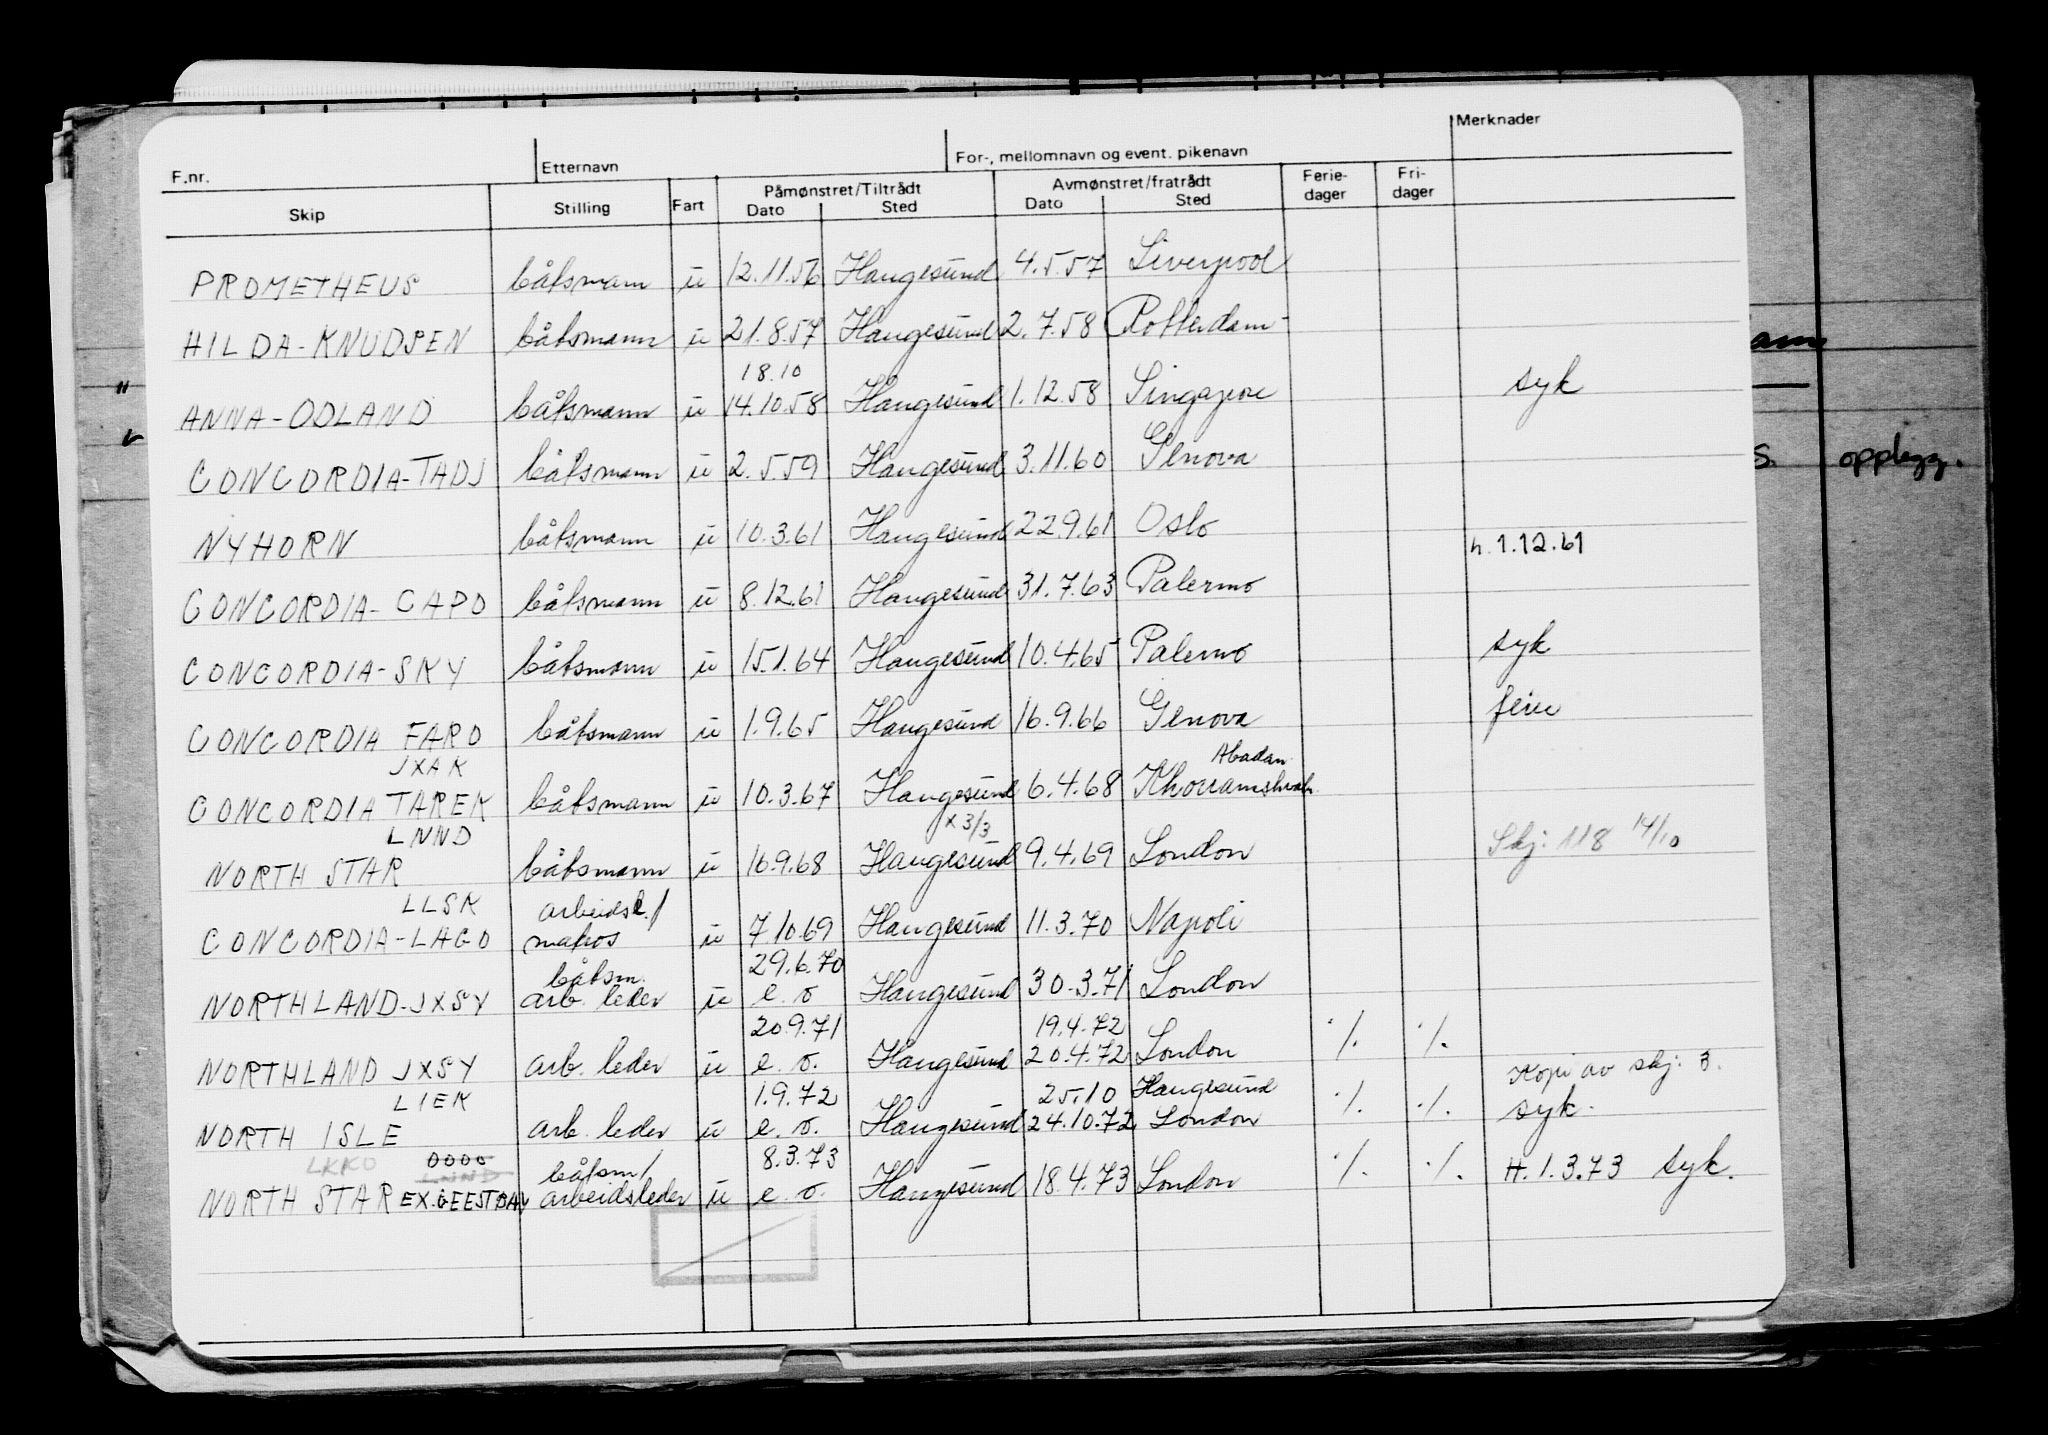 Merknader
F.nr. Etternavn For-, mellomnavn og event. pikenavn
Skip Stilling Fart Påmønstret/Tiltrådt Dato Sted Avmønstret/fratrådt Dato Sted Ferie-dager Fri-dager
PROMETHEUS båtsmann u 12.11.56 Haugesund 4.5.57 Liverpool
HILDA-KNUDSEN båtsmann u 21.8.57 Haugesund 2.7.58 Rotterdam
18.10
ANNA-ODLAND båtsmann u 14.10.58 Haugesund 1.12.58 Singapore syk
CONCORDIA-TADJ båtsmann u 2.5.59 Haugesund 3.11.60 Genova
NYHORN båtsmann u 10.3.61 Haugesund 22.9.61 Oslo h.1.12.61
CONCORDIA-CAPO båtsmann u 8.12.61 Haugesund 31.7.63 Palermo
CONCORDIA-SKY båtsmann u 15.1.64 Haugesund 10.4.65 Palermo syk
CONCORDIA FARO båtsmann u 1.9.65 Haugesund 16.9.66 Genova ferie
JXAK Abadan
CONCORDIA TAREK båtsmann u 10.3.67 Haugesund 6.4.68 Khorramshahr
LNND x 3/3
NORTH STAR båtsmann u 10.9.68 Haugesund 9.4.69 London Skj. 118 14/10
LLSK arbeidsl./
CONCORDIA-LAGO matros u 7.10.69 Haugesund 11.3.70 Napoli
båtsm. 29.6.70
NORTHLAND-JXSY arb. leder u e.o Haugesund 30.3.71 London
20.9.71 19.4.72
NORTHLAND JXSY arb. leder u e.o. Haugesund 20.4.72 London ./. ./.
LIEK 1.9.72 25.10 Haugesund Kopi av skj. 3.
NORTH ISLE arb. leder u e.o. Haugesund 24.10.72 London ./. ./. syk.
LKKO 0000 LNND båtsm/ 8.3.73
NORTH STAR EX.GEESTBAY arbeidsleder u e.o. Haugesund 18.4.73 London ./. ./. H.1.3.73 syk.
s. opplegg.